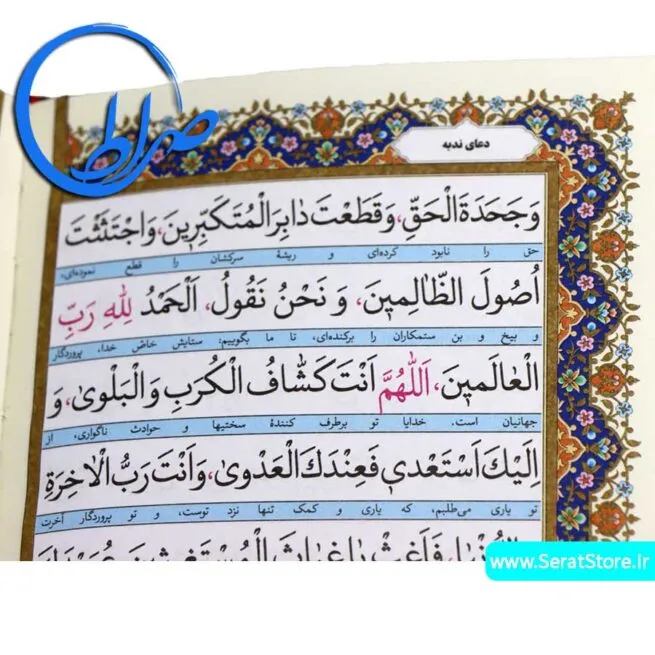 صراط
دعای ندبه
وَجَحَدَةَ الْحَقِّ، وَقَطَعْتَ دٰابِرَ الْمُتَكَبِّرِينَ، وَاجْتَثَثْتَ
حق را نابود کرده‌ای و ریشهٔ سرکشان را قطع نموده‌ای،
اُصُولَ الظّٰالِمِينَ، وَ نَحْنُ نَقُولُ، اَلْحَمْدُ لِلّٰهِ رَبِّ
و بیخ و بن ستمکاران را برکنده‌ای، تا ما بگوییم: ستایش خاصّ خدا، پروردگار
الْعٰالَمينَ، اَللّٰهُمَّ اَنْتَ كَشّٰافُ الْكُرَبِ وَالْبَلْوىٰ، وَ
جهانیان است. خدایا تو برطرف کنندهٔ سختیها و حوادث ناگواری، از
اِلَيْكَ اَسْتَعْدي فَعِنْدَكَ الْعَدْوىٰ، وَاَنْتَ رَبُّ الْاٰخِرَةِ
تو یاری می‌طلبم، که یاری و کمک تنها نزد توست، و تو پروردگار آخرت
www.SeratStore.ir